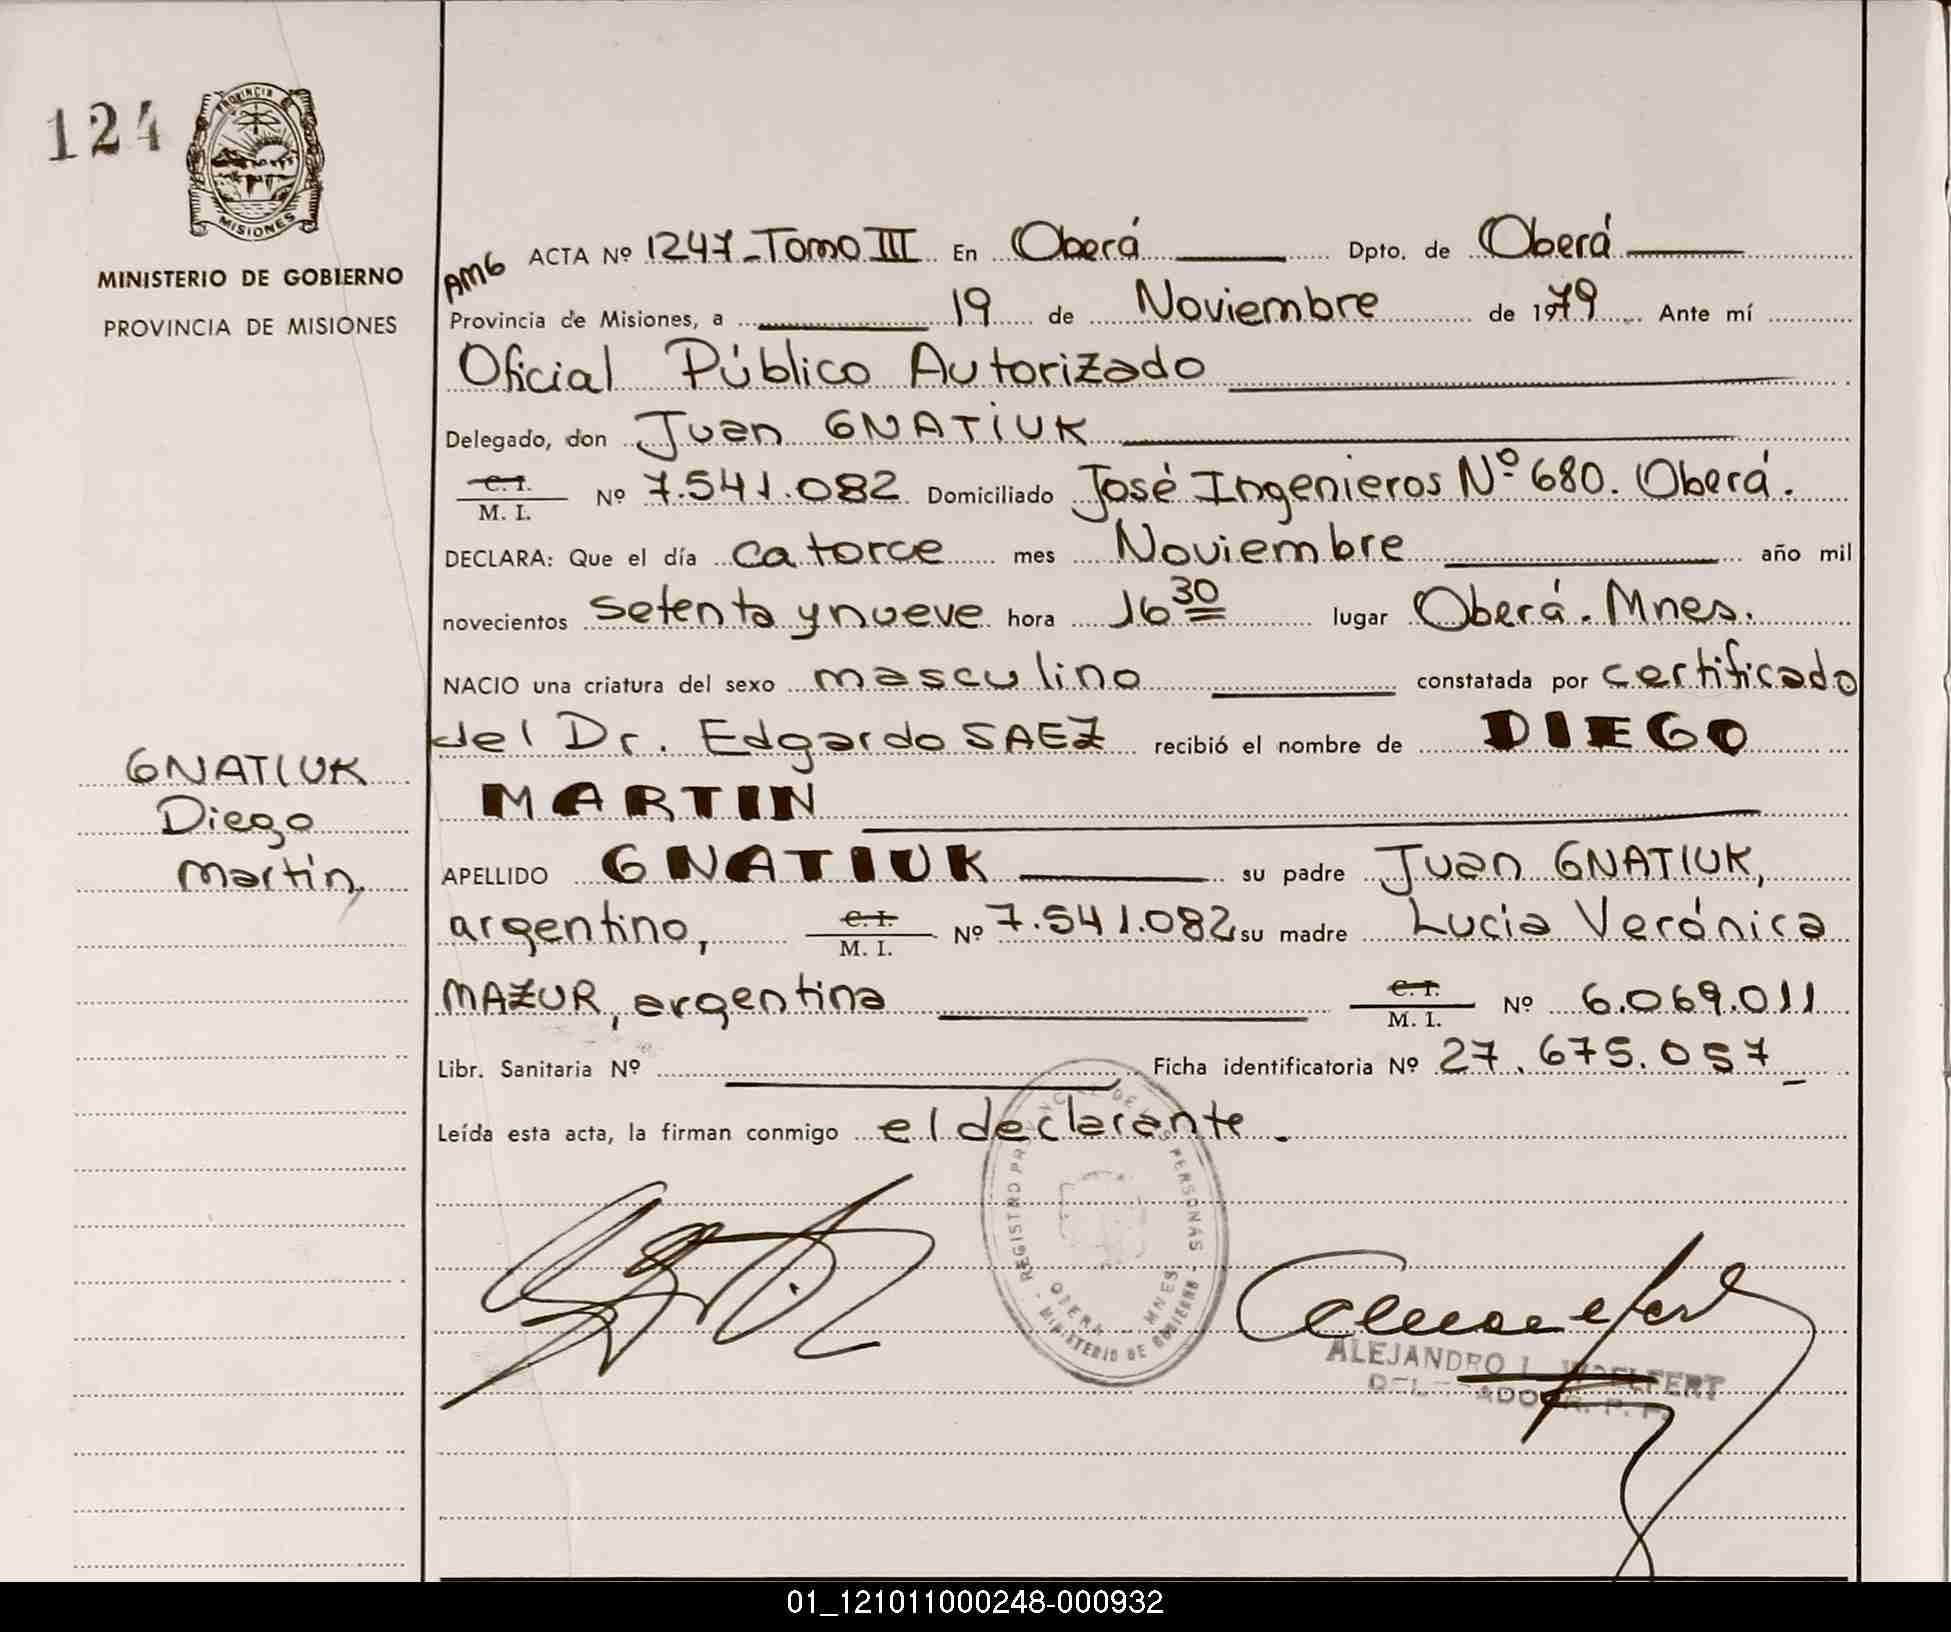 124
PROVINCIA DE
MISIONES
MINISTERIO DE GOBIERNO
PROVINCIA DE MISIONES
GNATIUK
Diego
Martín,
AMG ACTA Nº 1247 - Tomo III En Oberá Dpto. de Oberá
Provincia de Misiones, a 19 de Noviembre de 1979 Ante mí
Oficial Público Autorizado
Delegado, don Juan GNATIUK
C. I.
M. I. Nº 7.541.082 Domiciliado José Ingenieros Nº 680. Oberá.
DECLARA: Que el día catorce mes Noviembre año mil
novecientos setenta y nueve hora 16 30 lugar Oberá. Mnes.
NACIO una criatura del sexo masculino constatada por certificado
del Dr. Edgardo SAEZ recibió el nombre de DIEGO
MARTIN
APELLIDO GNATIUK su padre Juan GNATIUK,
argentino, C. I. M. I. Nº 7.541.082 su madre Lucia Verónica
MAZUR, argentina C. I. M. I. Nº 6.069.011
Libr. Sanitaria Nº Ficha identificatoria Nº 27.675.057_
Leída esta acta, la firman conmigo el declarante.
REGISTRO PROVINCIAL DE LAS PERSONAS
OBERA MNES
- MINISTERIO DE GOBIERNO -
ALEJANDRO L. WOELFERT
DELEGADO R. P. P.
01_121011000248-000932